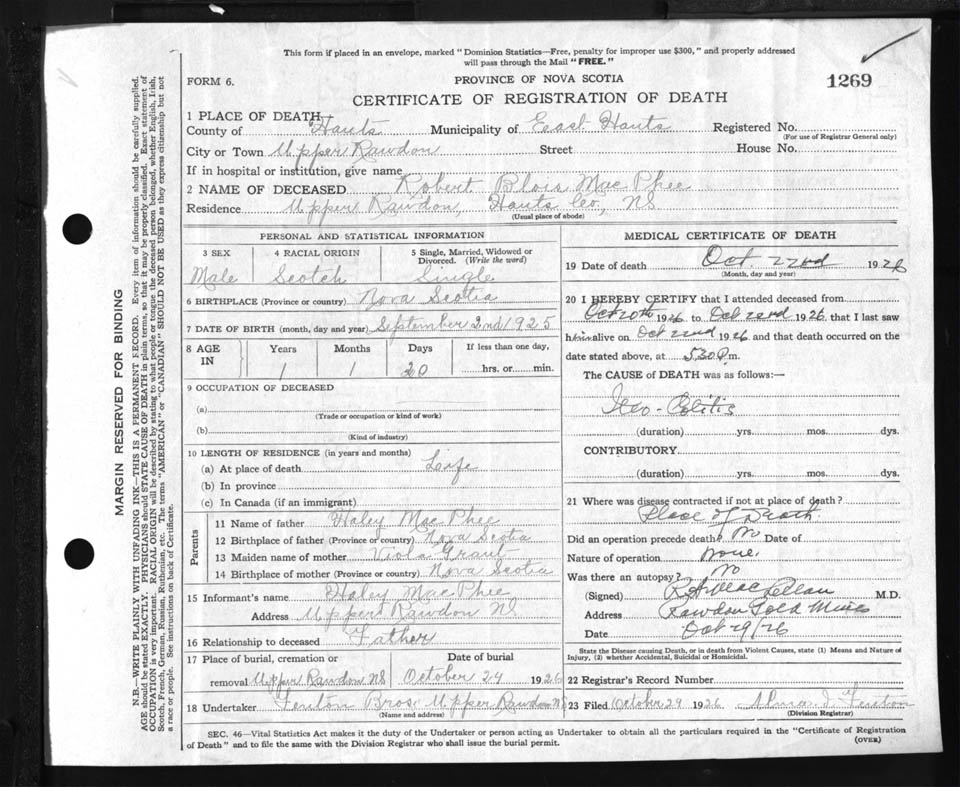 This form if placed in an envelope, marked "Dominion Statistics—Free, penalty for improper use $300," and properly addressed
will pass through the Mail "FREE."
FORM 6.
PROVINCE OF NOVA SCOTIA
1269
CERTIFICATE OF REGISTRATION OF DEATH
1 PLACE OF DEATH
County of Hants Municipality of East Hants Registered No.
(For use of Registrar General only)
City or Town Upper Rawdon Street House No.
If in hospital or institution, give name
2 NAME OF DECEASED Robert Blois MacPhee
Residence Upper Rawdon, Hants Co, NS
(Usual place of abode)
PERSONAL AND STATISTICAL INFORMATION
3 SEX 4 RACIAL ORIGIN 5 Single, Married, Widowed or
Divorced. (Write the word)
Male Scotch Single
6 BIRTHPLACE (Province or country) Nova Scotia
7 DATE OF BIRTH (month, day and year) September 2nd 1925
8 AGE IN Years Months Days If less than one day,
1 1 20 hrs. or min.
9 OCCUPATION OF DECEASED
(a)
(Trade or occupation or kind of work)
(b)
(Kind of industry)
10 LENGTH OF RESIDENCE (in years and months)
(a) At place of death Life
(b) In province
(c) In Canada (if an immigrant)
Parents
11 Name of father Haley MacPhee
12 Birthplace of father (Province or country) Nova Scotia
13 Maiden name of mother Viola Grant
14 Birthplace of mother (Province or country) Nova Scotia
15 Informant's name Haley MacPhee
Address Upper Rawdon NS
16 Relationship to deceased Father
17 Place of burial, cremation or Date of burial
removal Upper Rawdon NS October 24 1926
18 Undertaker Fenton Bros Upper Rawdon NS
(Name and address)
MEDICAL CERTIFICATE OF DEATH
19 Date of death Oct. 22nd 1926
(Month, day and year)
20 I HEREBY CERTIFY that I attended deceased from
Oct 20th 1926 to Oct 22nd 1926, that I last saw
him alive on Oct 22nd 1926 and that death occurred on the
date stated above, at 5.30 P.m.
The CAUSE of DEATH was as follows:—
Ileo-Colitis
(duration) yrs. mos. dys.
CONTRIBUTORY
(duration) yrs. mos. dys.
21 Where was disease contracted if not at place of death?
Place of Death.
Did an operation precede death? No Date of
Nature of operation None.
Was there an autopsy? No
(Signed) MacLellan M.D.
Address Rawdon Gold Mines
Date Oct 29/26
State the Disease causing Death, or in death from Violent Causes, state (1) Means and Nature of
Injury, (2) whether Accidental, Suicidal or Homicidal.
22 Registrar's Record Number
23 Filed October 29 1926 Alma I Fenton
(Division Registrar)
SEC. 46—Vital Statistics Act makes it the duty of the Undertaker or person acting as Undertaker to obtain all the particulars required in the "Certificate of Registration
of Death" and to file the same with the Division Registrar who shall issue the burial permit.
(OVER)
MARGIN RESERVED FOR BINDING
N.B.—WRITE PLAINLY WITH UNFADING INK—THIS IS A PERMANENT RECORD. Every item of information should be carefully supplied.
AGE should be stated EXACTLY. PHYSICIANS should STATE CAUSE OF DEATH in plain terms, so that it may be properly classified. Exact statement of
OCCUPATION is very important. RACIAL ORIGIN will be described by stating to what people or tongue the deceased person belonged, whether English, Irish,
Scotch, French, German, Russian, Ruthenian, etc. The terms "AMERICAN" or "CANADIAN" SHOULD NOT BE USED as they express citizenship but not
a race or people. See instructions on back of Certificate.